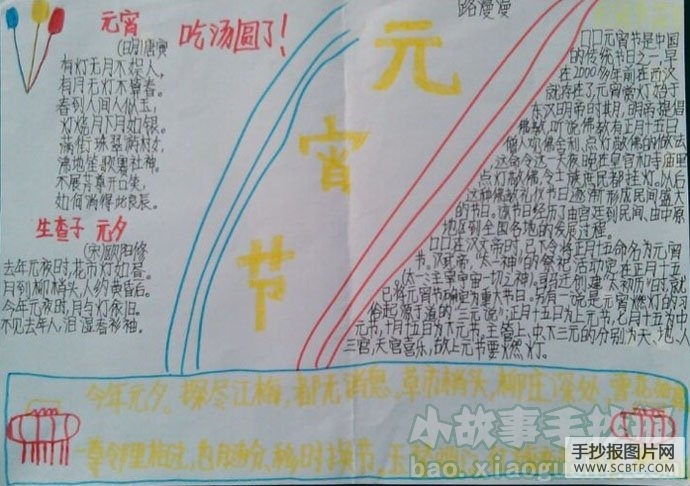 元宵
(明)唐寅
有灯无月不娱人,
有月无灯不算春。
春到人间人似玉,
灯烧月下月如银。
满街珠翠游村女,
沸地笙歌赛社神。
不展芳尊开口笑,
如何消得此良辰。
吃汤圆了!
生查子 元夕
(宋)欧阳修
去年元夜时,花市灯如昼。
月到柳梢头,人约黄昏后。
今年元夜时,月与灯依旧。
不见去年人,泪湿春衫袖。
元
宵
节
路漫漫
口口元宵节是中国
的传统节日之一,早
在2000多年前在西汉
就存在了,元宵赏灯始于
东汉明帝时期,明帝提倡
佛教,听说佛教有正月十五日
僧人观佛舍利,点灯敬佛的做法
这夜在皇宫和寺庙里
点灯敬佛令士族庶民都挂灯。以后
这种佛教礼仪节日逐渐形成民间盛大
的节日。该节日经历了由宫廷到民间,由中原
地区到全国各地的发展过程。
口口在汉文帝时,已下令将正月十五命名为元宵
节。汉武帝时,"太一神"的祭祀活动定在正月十五,
(太一:主宰宇宙一切之神)。司马迁创建"太初历"时,就
已将元宵节确定为重大节日。另有一说是元宵燃灯的习
俗起源于道的"三元说";正月十五日为上元节,七月十五为中
元节,十月十五日为下元节。主管上、中、下三元的分别为天、地、人
三官,天官喜乐,故上元节要燃灯。
今年元夕。探尽江梅,都无消息。草市梢头,柳庄深处,雪花如
一尊邻里相过,也随分、移时换节。玉
小故事手抄报
bao.xiaogu
手抄报图片网
WWW.SCBTP.COM